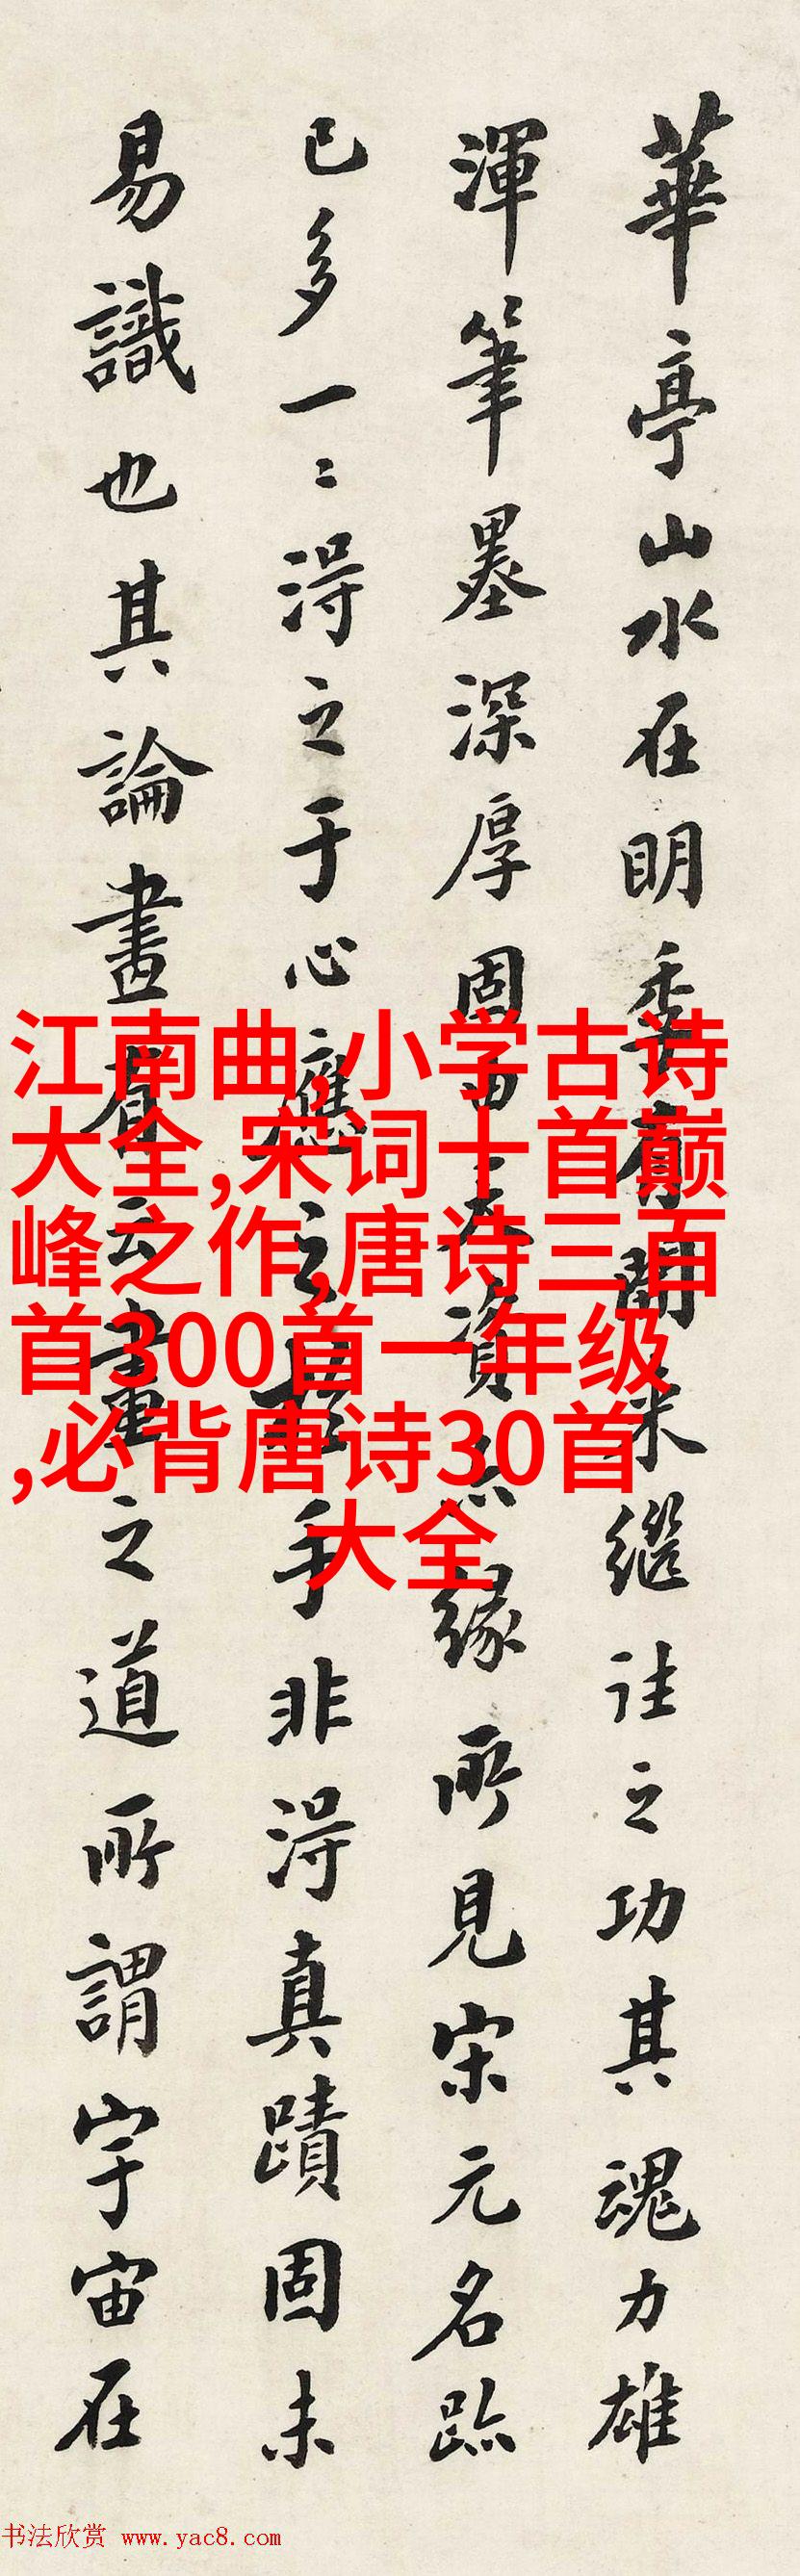 華亭山水在明季有開来継往之功其魂力雄
渾筆墨深厚固由天資亦縁所見宋元名跡
已多一二得之于心應之于手非得真蹟固未
易識也其論畫有云畫之道所謂宇宙在
江南曲,小学古诗
大全,宋词十首巅
峰之作,唐诗三百
首300首一年级
,必背唐诗30首
大全
书法欣赏 www.yac8.com